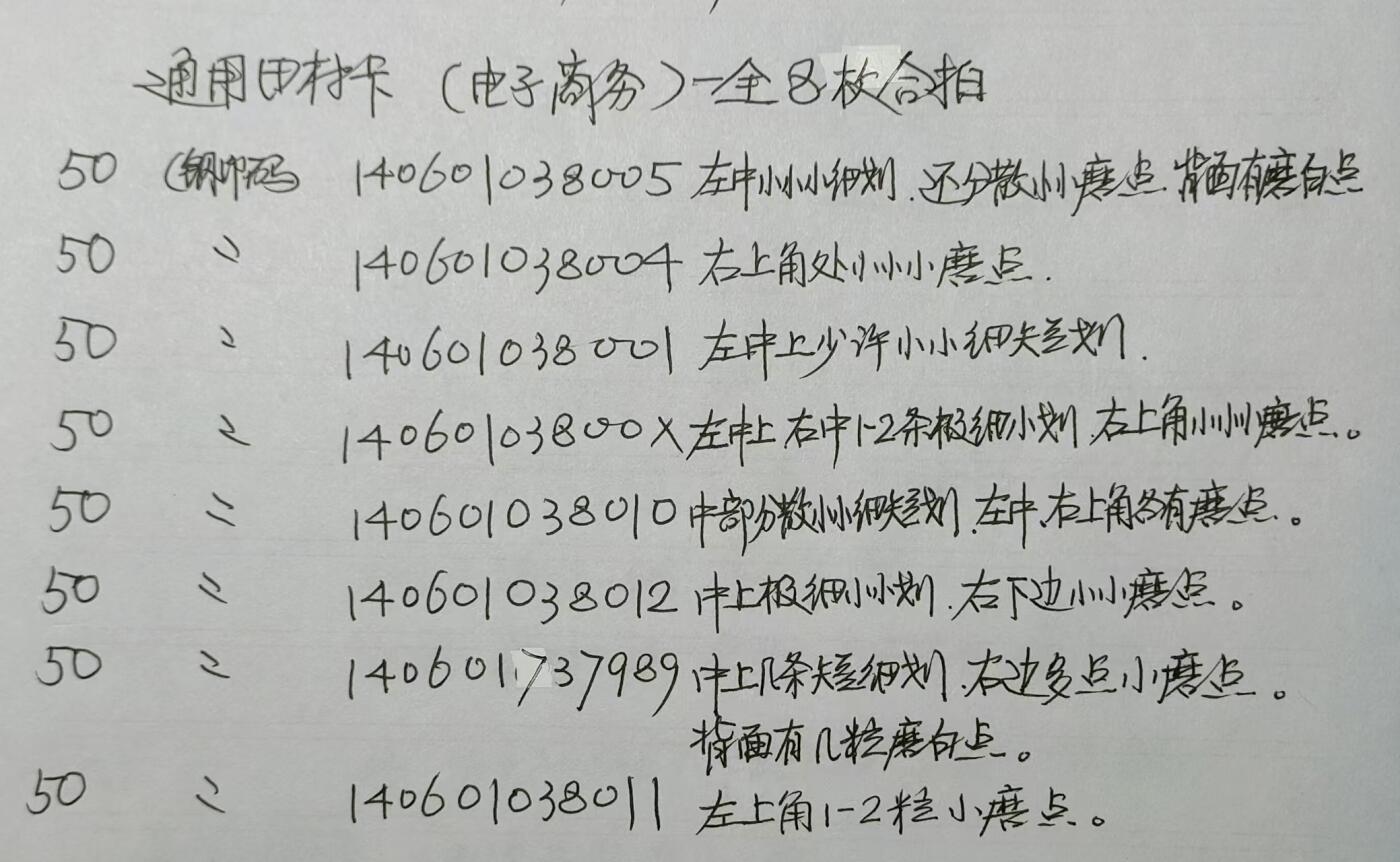 通用田村卡（电子商务）一全8枚合拍
50 （钢印码 140601038005 左中小小小细划.还分散小小磨点.背面有磨白点
50 〃 140601038004 右上角处小小小磨点.
50 〃 140601038001 左中上少许小小细短划.
50 〃 14060103800X 左中上右中1-2条极细小划.右上角小小小磨点。
50 〃 140601038010 中部分散小小细短划.左中.右上角各有磨点。
50 〃 140601038012 中上极细小小划.右下边小小磨点。
50 〃 140601737989 中上几条短细划.右边多点小磨点。
背面有几粒磨白点。
50 〃 140601038011 左上角1-2粒小磨点。